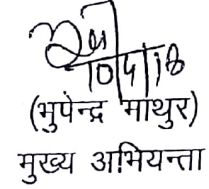 10/4/18
(भुपेन्द्र माथुर)
मुख्य अभियन्ता